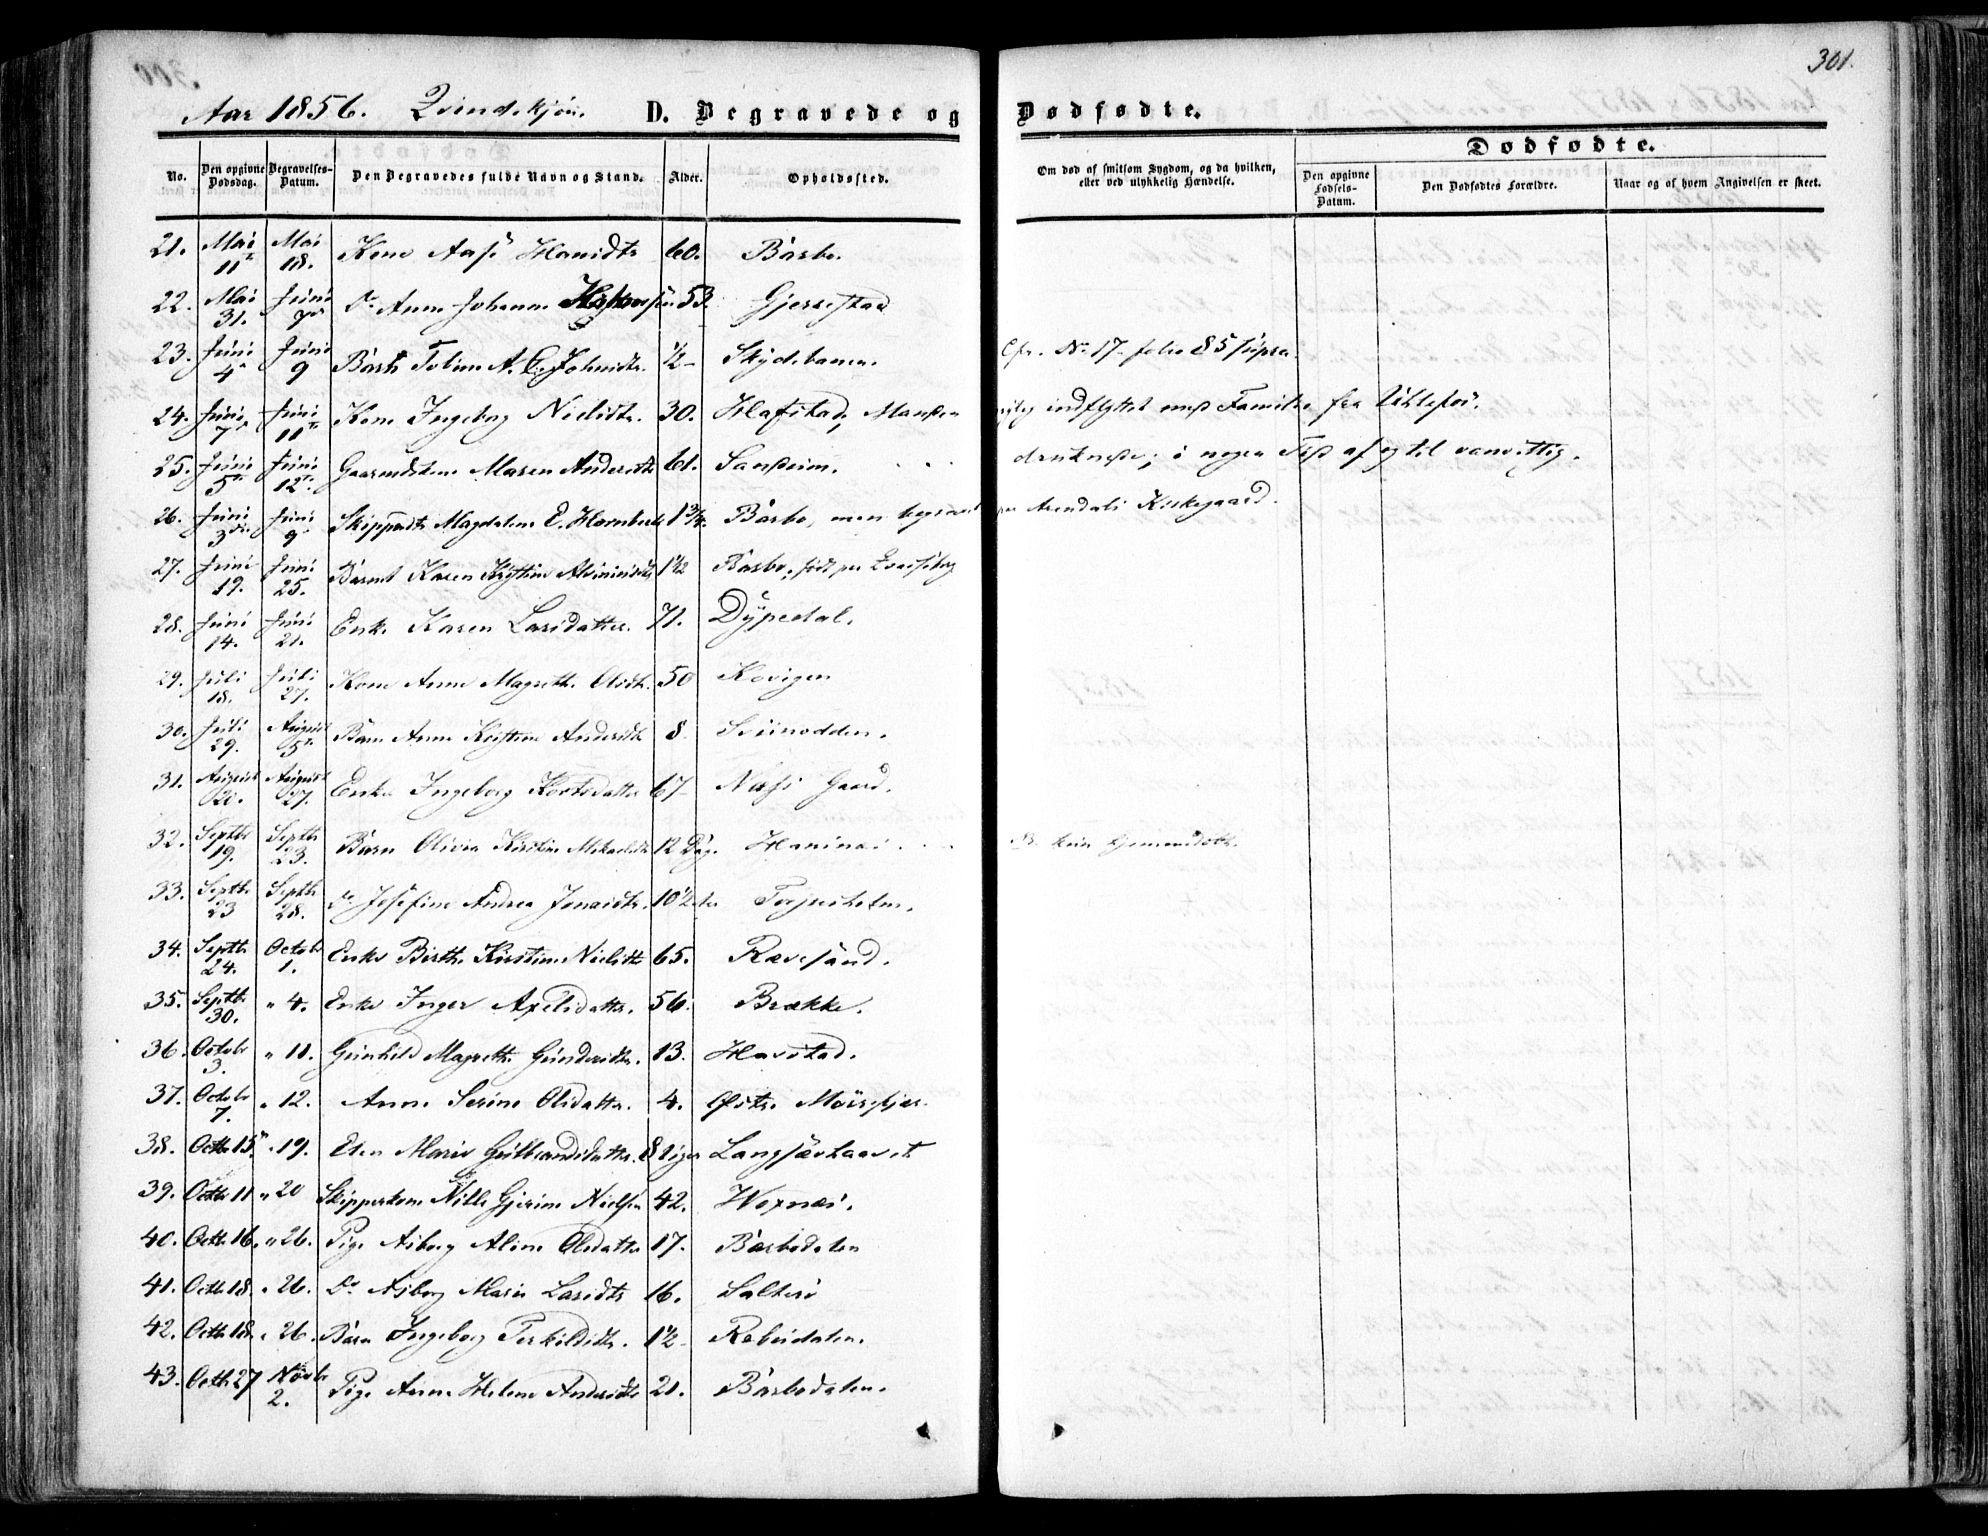 301.
Aar 1856. Qvindekjøn. D. Begravede og Dødfødte.
Dødfødte.
No. Den opgivne Dødsdag. Begravelses-Datum. Den Begravedes fulde Navn og Stand. Alder. Opholdssted. Om død af smitsom Sygdom, og da hvilken, eller ved ulykkelig Hændelse. Den opgivne Fødsels-Datum. Den Dødfødtes Forældre. Naar og af hvem Angivelsen er skeet.
21. Mai 11 Mai 18. Kone 60. Barbo.
22. Mai 31. Juni 7 Do Anne Johanne 53. Gjerrestad
23. Juni 4 Juni 9 Barn 1/2 Skydebanen. Cfr. No 17 folio 85 supra
24. Juni 7 Juni 11 Kone Ingeborg Nielsdtr. 30. Hafstad, Manden nylig indflyttet med Familie fra
25. Juni 5 Juni 12 Maren Andersdtr 61. druknede; i nogen Tid af og til vanvittig.
26. Juni 3 Juni 9 Magdalene E. 1 3/4. Barbo, men begravet paa Arendals Kirkegaard.
27. Juni 19. Juni 25. Barnet Karen 1 1/2 Barbo, født paa
28. Juni 14. Juni 21. Enke Karen Larsdatter. 71. Dypedal.
29. Juli 18. Juli 27. Kone Anne Magrethe Olsdtr. 50 Kovigen
30. Juli 29. August 5 Barn Anne Kristine Andersdtr 8 Sviinodden.
31. August 20. August 27. Enke Ingeborg 67 Næs Gaard.
32. Septbr 19. Septbr 23. Barn Olivia Kirstine 12 Dag.
33. Septbr 23 Septbr 28. Do Josefine Andrea 10 1/2 Torjusholm.
34. Septbr 24. Octobr 1. Enke Birthe Kirstine Nielsdtr 65. Rævesand.
35. Septbr 30. " 4. Enke Inger Axelsdatter. 56. Brække.
36. Octobr 3. " 11. Gunhild Magrethe Gundersdtr. 13. Havstad.
37. Octobr 7. " 12. Anne Serine Olsdatter. 4. Østre
38. Octbr 15 " 19. Elen Marie Gulbrandsdatter. 8 Uger Langsævhaavet
39. Octbr 11 " 20 Skipperkone Nille Gjerine Nielsen 42. Woxnæs.
40. Octbr 16. " 26. Pige Asborg Aline Olsdatter 17. Barbodalen
41. Octbr 18. " 26. Do Asborg Marie Larsdtr 16. Salterø
42. Octbr 18. " 26. Barn Ingeborg Terkildsdtr. 1 1/2
43. Octbr 27 Novbr 2. Pige Anne Helene Andersdtr 21. Barbodalen.